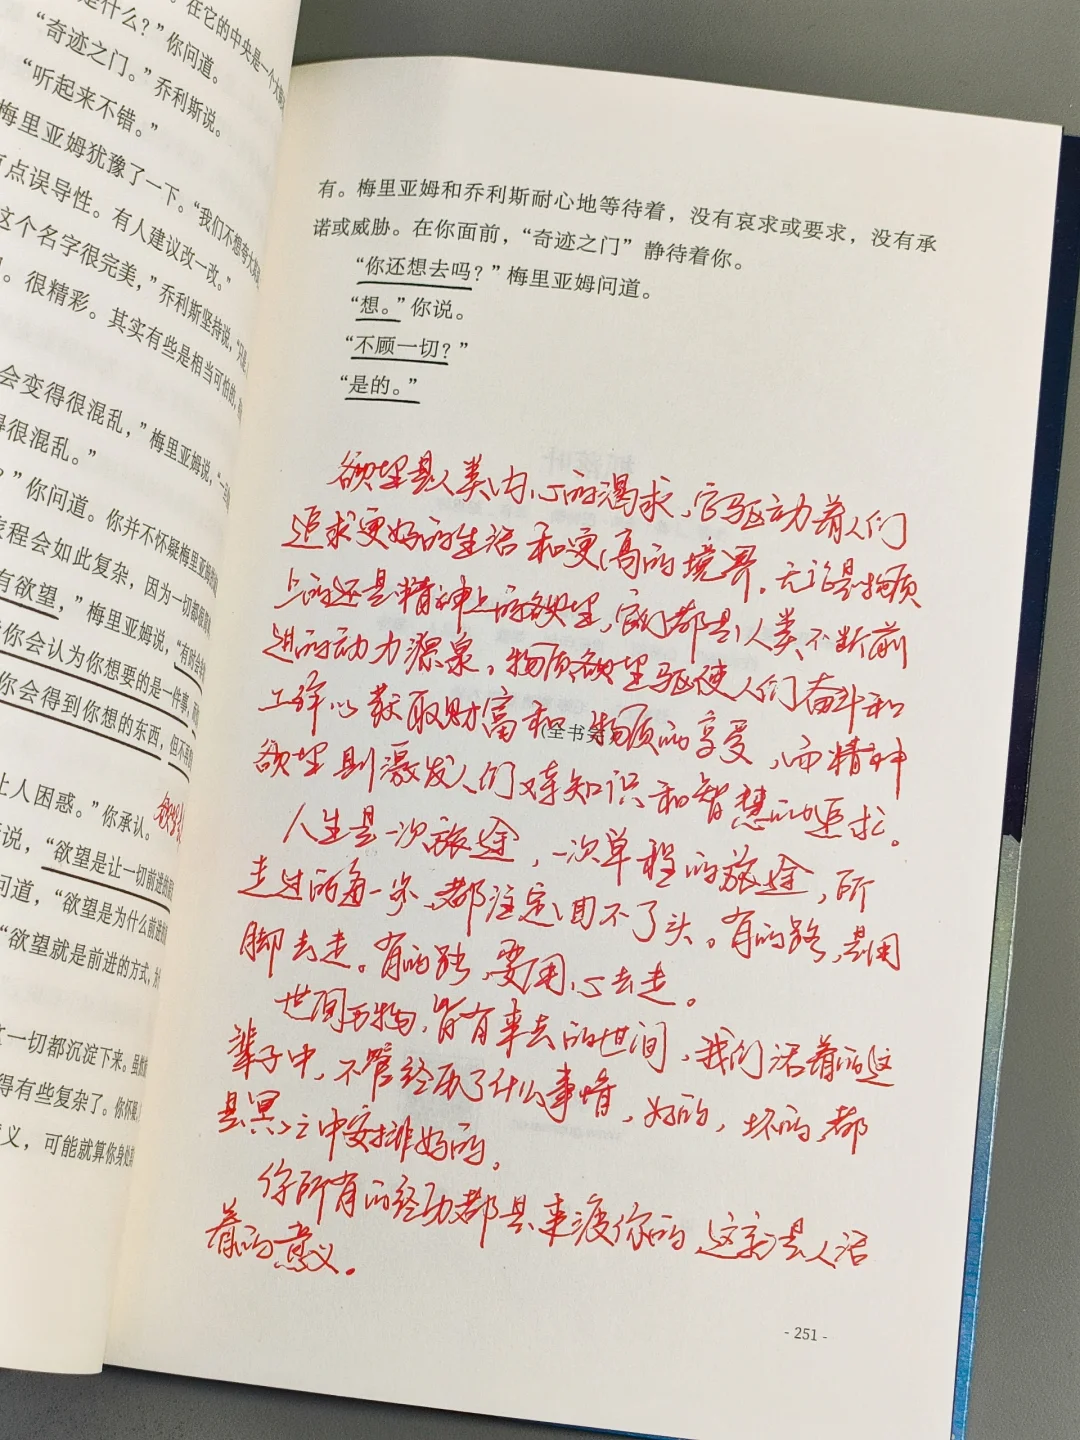 是什么？”你问道。在它的中央是一个
“奇迹之门。”乔利斯说。
“听起来不错。”
梅里亚姆犹豫了一下。“我们不想夸大
点误导性。有人建议改一改。”
这个名字很完美，”乔利斯坚持说，“只是
。很精彩。其实有些是相当可怕的，
会变得很混乱，”梅里亚姆说，“一
得很混乱。”
？”你问道。你并不怀疑梅里亚姆
旅程会如此复杂，因为一切都
有欲望，”梅里亚姆说，“有时会
你会认为你想要的是一件事，
你会得到你想的东西，但不
让人困惑。”你承认。
说，“欲望是让一切前进的
问道，“欲望是为什么前进
“欲望就是前进的方式，
一切都沉淀下来。虽然
得有些复杂了。你怀疑
义，可能就算你身处
有。梅里亚姆和乔利斯耐心地等待着，没有哀求或要求，没有承
诺或威胁。在你面前，“奇迹之门”静待着你。
“你还想去吗？”梅里亚姆问道。
“想。”你说。
“不顾一切？”
“是的。”
欲望是人类内心的渴求，它驱动着人们
追求更好的生活和更高的境界。无论是物质
上的还是精神上的欲望，它们都是人类不断前
进的动力源泉。物质欲望驱使人们奋斗和
工作以获取财富和物质的享受，而精神
(全书完)
欲望则激发人们对知识和智慧的追求。
人生是一次旅途，一次单程的旅途，所
走过的每一步，都注定回不了头。有的路，是用
脚去走。有的路，要用心去走。
世间万物，皆有来去的世间，我们活着的这
辈子中，不管经历了什么事情，好的，坏的，都
是冥冥之中安排好的。
你所有的经历都是来渡你的，这就是人活
着的意义。
- 251 -